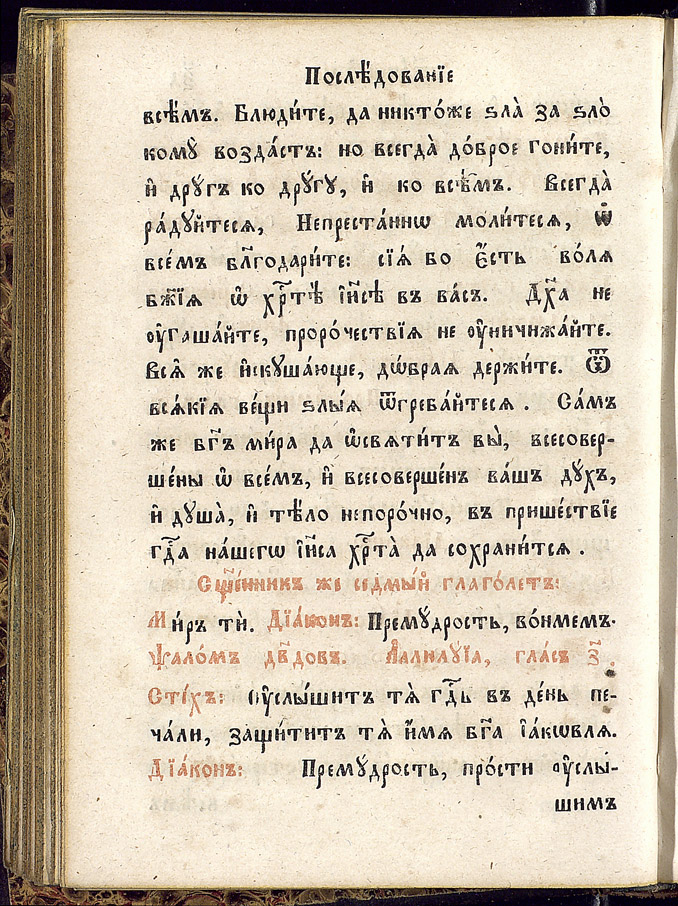 Послѣ́дованїе
всѣ́мъ. Блюди́те, да никто́же ѕла̀ за ѕло̀
комꙋ̀ возда́стъ: но всегда̀ до́брое гони́те,
и҆ дрꙋ́гъ ко дрꙋ́гꙋ, и҆ ко всѣ́мъ. Всегда̀
ра́дꙋйтесѧ, Непреста́ннѡ моли́тесѧ, ѡ҆
все́мъ бл҃годари́те: сїѧ́ бо є҆́сть во́лѧ
бж҃їѧ ѡ҆ хрⷭ҇тѣ̀ і҆и҃сѣ въ ва́съ. Дх҃а не
ᲂу҆гаша́йте, проро́чествїѧ не ᲂу҆ничижа́йте.
Всѧ̑ же и҆скꙋша́юще, дѡ́браѧ держи́те. Ѿ
всѧ́кїѧ ве́щи ѕлы́ѧ ѿгреба́йтесѧ. Са́мъ
же бг҃ъ ми́ра да ѡ҆свѧти́тъ вы̀, всесовер-
ше́ны ѡ҆ все́мъ, и҆ всесоверше́нъ ва́шъ дꙋ́хъ,
и҆ дꙋша̀, и҆ тѣ́ло непоро́чно, въ прише́ствїе
гдⷭ҇а на́шегѡ і҆и҃са хрⷭ҇та̀ да сохрани́тсѧ.
Сщ҃е́нникъ же седмы́й глаго́летъ:
Ми́ръ тѝ. Дїа́конъ: Премꙋ́дрость, во́нмемъ.
Ѱало́мъ дв҃довъ. Аллилꙋ́їа, гла́съ з҃.
Сті́хъ: Оу҆слы́шитъ тѧ̀ гдⷭ҇ь въ де́нь пе-
ча́ли, защи́титъ тѧ̀ и҆́мѧ бг҃а і҆а́кѡвлѧ.
Дїа́конъ: Премꙋ́дрость, про́сти ᲂу҆слы́-
шимъ